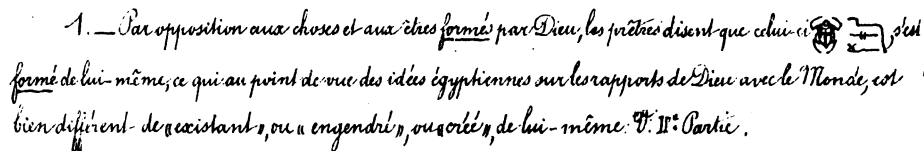 1. — Par opposition aux choses et aux êtres formés par Dieu, les prêtres disent que celui-ci s'est
formé de lui-même, ce qui au point de vue des idées égyptiennes sur les rapports de Dieu avec le Monde, est
bien différent de «existant», ou «engendré», ou «créé», de lui-même. V. IIe Partie.